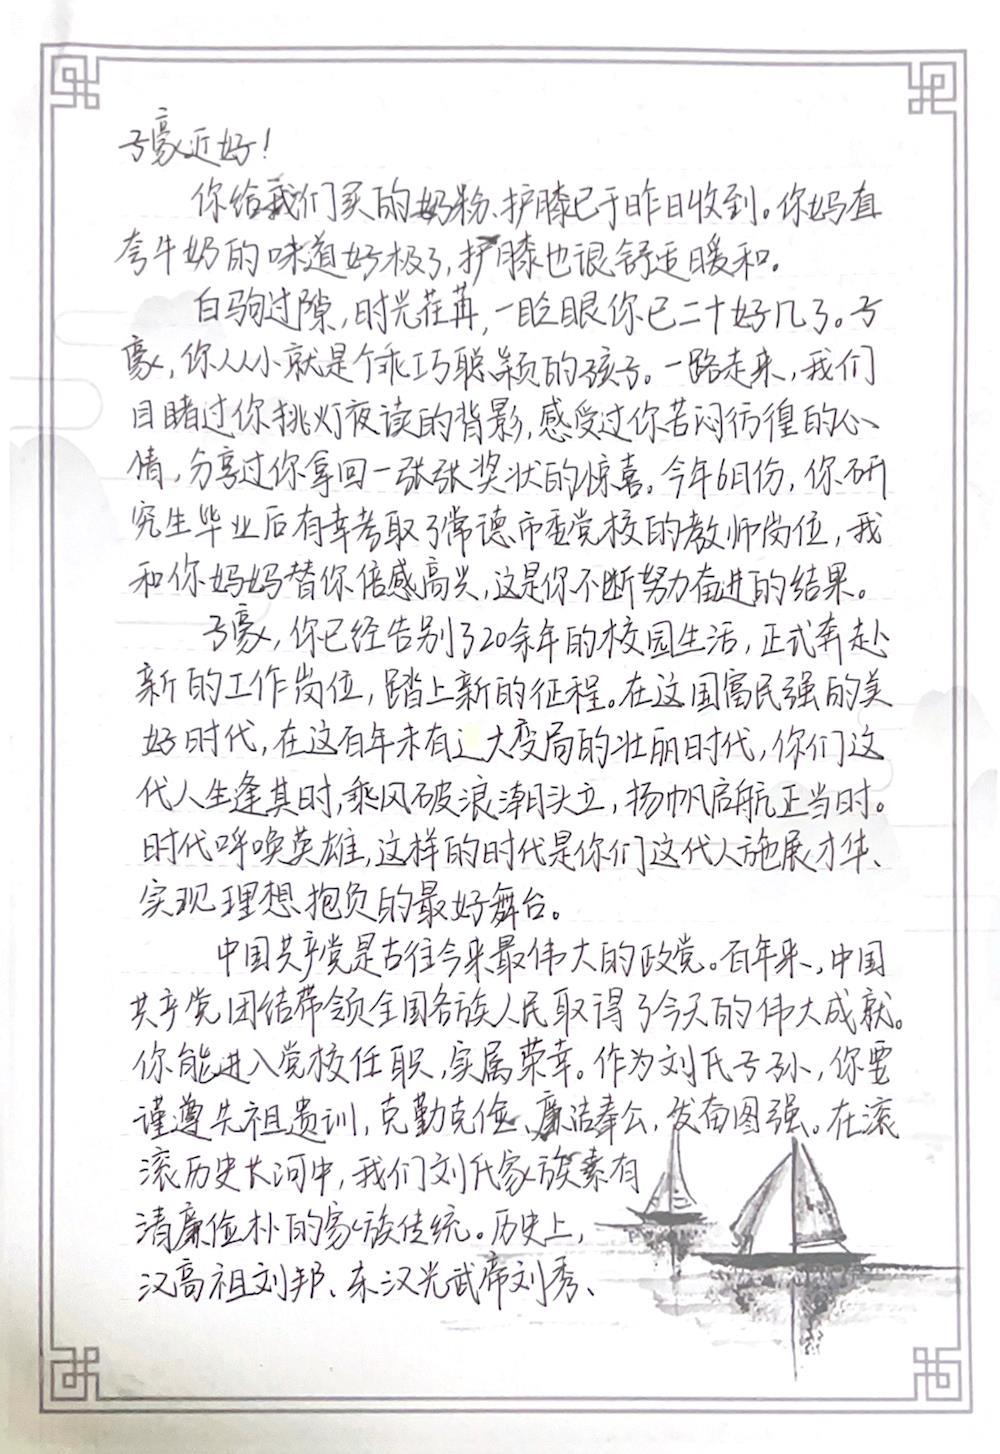 子豪近好!
你给我们买的奶粉、护膝已于昨日收到。你妈直
夸牛奶的味道好极了,护膝也很舒适暖和。
白驹过隙,时光荏苒,一眨眼你已二十好几了。子
豪,你从小就是个乖巧聪颖的孩子。一路走来,我们
目睹过你挑灯夜读的背影,感受过你苦闷彷徨的心
情,分享过你拿回一张张奖状的惊喜。今年6月份,你研
究生毕业后有幸考取了常德市委党校的教师岗位,我
和你妈妈替你倍感高兴,这是你不断努力奋进的结果。
子豪,你已经告别了20余年的校园生活,正式奔赴
新的工作岗位,踏上新的征程。在这国富民强的美
好时代,在这百年未有之大变局的壮丽时代,你们这
代人生逢其时,乘风破浪潮头立,扬帆启航正当时。
时代呼唤英雄,这样的时代是你们这代人施展才华、
实现理想抱负的最好舞台。
中国共产党是古往今来最伟大的政党。百年来,中国
共产党团结带领全国各族人民取得了今天的伟大成就。
你能进入党校任职,实属荣幸。作为刘氏子孙,你要
谨遵先祖遗训,克勤克俭、廉洁奉公,发奋图强。在滚
滚历史长河中,我们刘氏家族素有
清廉俭朴的家族传统。历史上,
汉高祖刘邦、东汉光武帝刘秀、